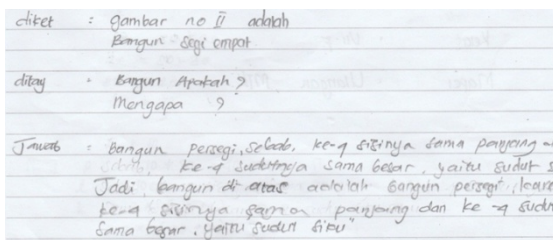 diket : gambar no II adalah
Bangun Segi empat
ditay : Bangun Apakah ?
Mengapa ?
Jawab : Bangun persegi, Sebab, ke-4 sisinya sama panjang
ke-4 sudutnya sama besar, yaitu sudut s
Jadi, bangun di atas adalah bangun persegi, kare
ke-4 sisinya sama panjang dan ke-4 sudu
sama besar, yaitu sudut siku"